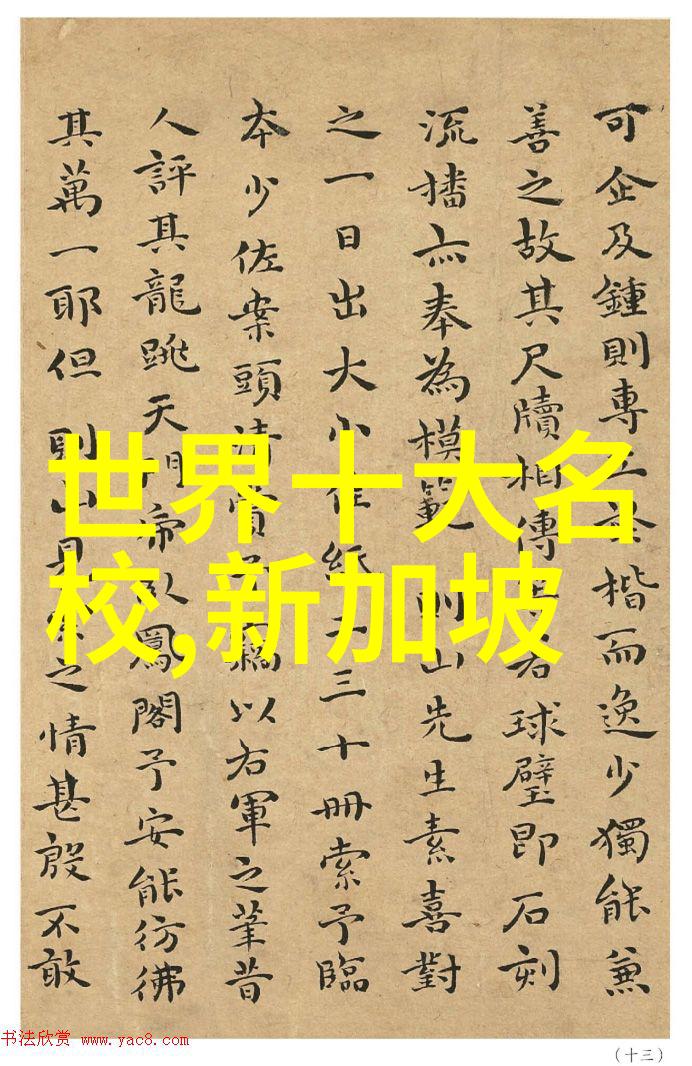 可企及鍾則專工於楷而逸少獨能兼
善之故其尺牘相傳
球璧即石刻
流播亦奉為模範則山先生素喜對
之一日出大小佳紙二三十冊索予臨
本少佐案頭清賞
以右軍之筆昔
人評其龍跳天門
鳳閣予安能彷彿
其萬一耶但則山
之情甚殷不敢
世界十大名
校,新加坡
书法欣赏 www.yac8.com
(十三)